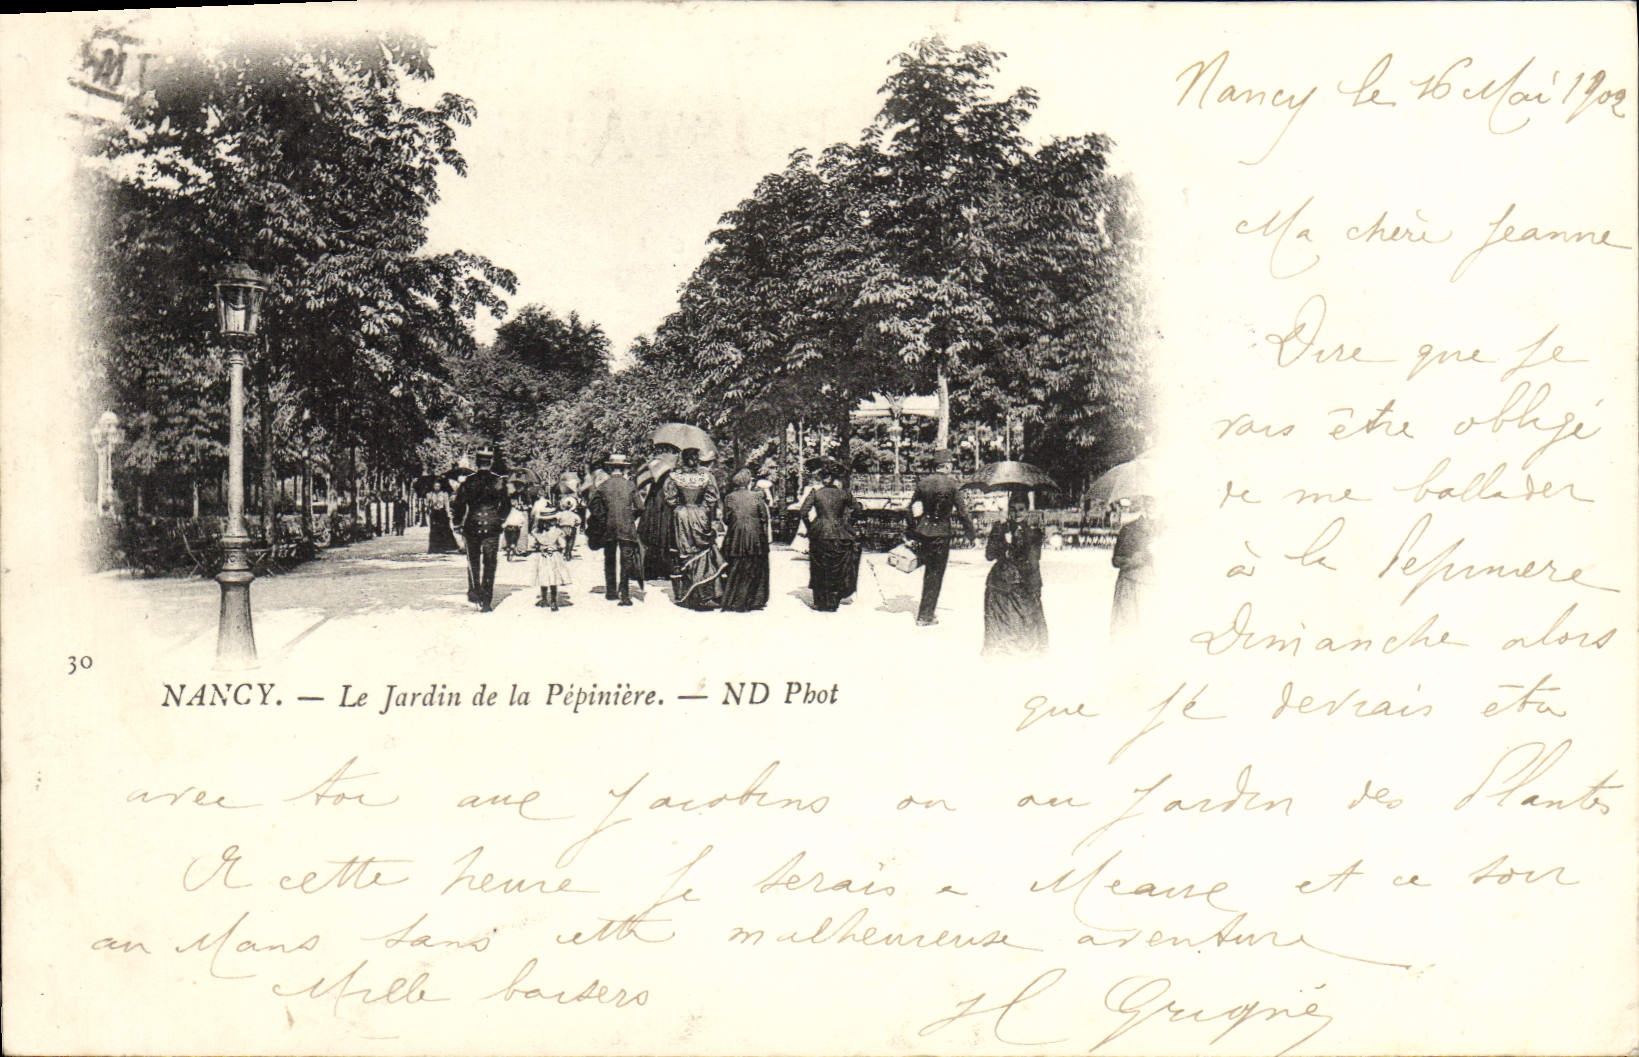 Nancy le 16 Mai 1902
Ma chère Jeanne
Dire que je
vais être obligé
de me ballader
à la Pepiniere
Dimanche alors
que je devrais être
avec toi aux Jacobins ou au Jardin des Plantes
A cette heure je serais a et ce soir
au Mans sans cette malheureuse aventure
Mille baisers
H Grigné
30
NANCY. — Le Jardin de la Pépinière. — ND Phot